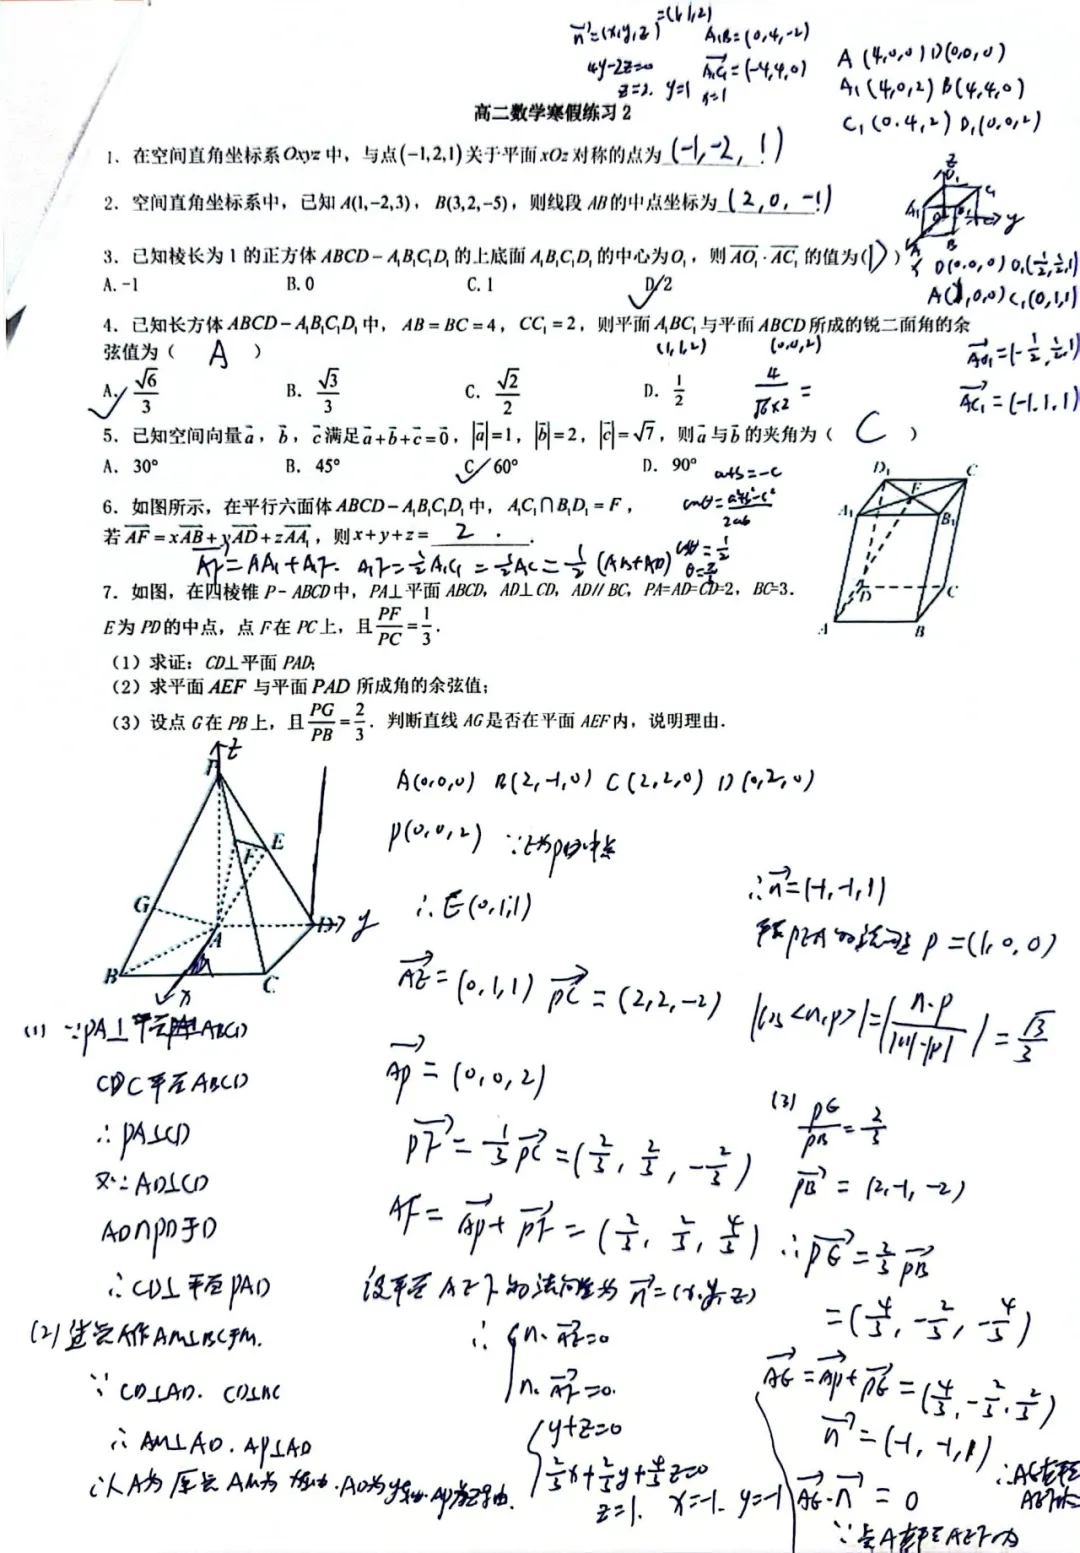 n⃗=(x,y,z)=(1,1,2) A₁B=(0,4,-2)
4y-2z=0 A₁C₁=(-4,4,0)
z=2. y=1 x=1
A(4,0,0) D(0,0,0)
A₁(4,0,2) B(4,4,0)
C₁(0.4,2) D₁(0,0,2)
高二数学寒假练习2
1. 在空间直角坐标系Oxyz中，与点(-1,2,1)关于平面xOz对称的点为 (-1,-2, 1)
2. 空间直角坐标系中，已知A(1,-2,3)，B(3,2,-5)，则线段AB的中点坐标为 (2,0,-1)
z D₁ C₁ A₁ O B₁ y A B x
3. 已知棱长为1的正方体ABCD-A₁B₁C₁D₁的上底面A₁B₁C₁D₁的中心为O₁，则AO₁·AC₁的值为(D)
D(0.0,0) O₁(1/2,1/2,1)
A. -1 B. 0 C. 1 D. 2
A(1,0,0) C₁(0,1,1)
4. 已知长方体ABCD-A₁B₁C₁D₁中，AB=BC=4，CC₁=2，则平面A₁BC₁与平面ABCD所成的锐二面角的余
弦值为（ A ） (1,1,2) (0,0,2)
AO₁=(-1/2,1/2,1)
A. √6/3 B. √3/3 C. √2/2 D. 1/2 4/(√6×2) =
AC₁=(-1.1.1)
5. 已知空间向量a，b，c满足a+b+c=0，|a|=1，|b|=2，|c|=√7，则a与b的夹角为（ C ）
A. 30° B. 45° C. 60° D. 90°
a+b=-c
cosθ=(a²+b²-c²)/2ab
cosθ=1/2
6. 如图所示，在平行六面体ABCD-A₁B₁C₁D₁中，A₁C₁∩B₁D₁=F，
若AF=xAB+yAD+zAA₁，则x+y+z= 2 .
AF=AA₁+A₁F. A₁F=1/2A₁C₁=1/2AC=1/2(AB+AD)
D₁ C F A₁ B₁ D C A B
7. 如图，在四棱锥P-ABCD中，PA⊥平面ABCD，AD⊥CD，AD∥BC，PA=AD=CD=2，BC=3.
E为PD的中点，点F在PC上，且PF/PC=1/3.
(1) 求证：CD⊥平面PAD;
(2) 求平面AEF与平面PAD所成角的余弦值;
(3) 设点G在PB上，且PG/PB=2/3. 判断直线AG是否在平面AEF内，说明理由.
z P E F G A D y B M C x
(1) ∵PA⊥平面ABCD
CD⊂平面ABCD
∴PA⊥CD
又∵AD⊥CD
AD∩PD于D
∴CD⊥平面PAD
(2)过点A作AM⊥BC于M.
∵CD⊥AD. CD⊥BC
∴AM⊥AD. AP⊥AD
以A为原点AM为x轴.AD为y轴.AP为z轴.
A(0,0,0) B(2,-1,0) C(2,2,0) D(0,2,0)
P(0,0,2) ∵E为PD中点
∴E(0,1,1)
AE=(0,1,1) PC=(2,2,-2)
AP=(0,0,2)
PF=1/3PC=(2/3,2/3,-2/3)
AF=AP+PF=(2/3,2/3,4/3)
设平面AEF的法向量为n⃗=(x,y,z)
∴ n·AE=0
n·AF=0.
y+z=0
2/3x+2/3y+4/3z=0
z=1. x=-1. y=-1
∴n⃗=(-1,-1,1)
平面PEA的法向量 p=(1,0,0)
|cos<n,p>|=|n·p/|n|·|p||=√3/3
(3) PG/PB=2/3
PB=(2,-1,-2)
∴PG=2/3PB
=(4/3,-2/3,-4/3)
AG=AP+PG=(4/3,-2/3,2/3)
n⃗=(-1,-1,1)
AG·n⃗=0
∵点A在平面AEF内
∴AG在平面
AEF内